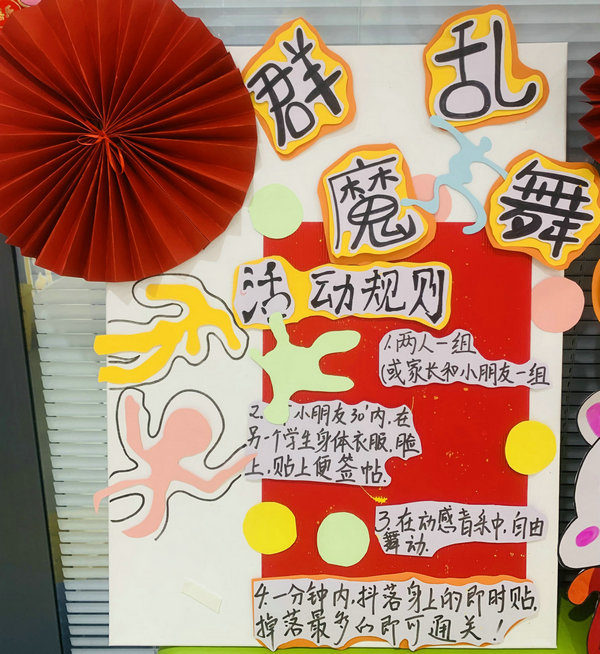 群乱
魔舞
活动规则
1.两人一组
(或家长和小朋友一组
2. 小朋友30'内,在
另一个学生身体衣服、脸
上,贴上便签帖.
3.在动感音乐中,自由
舞动.
4.一分钟内,抖落身上的即时贴,
掉落最多的即可通关!